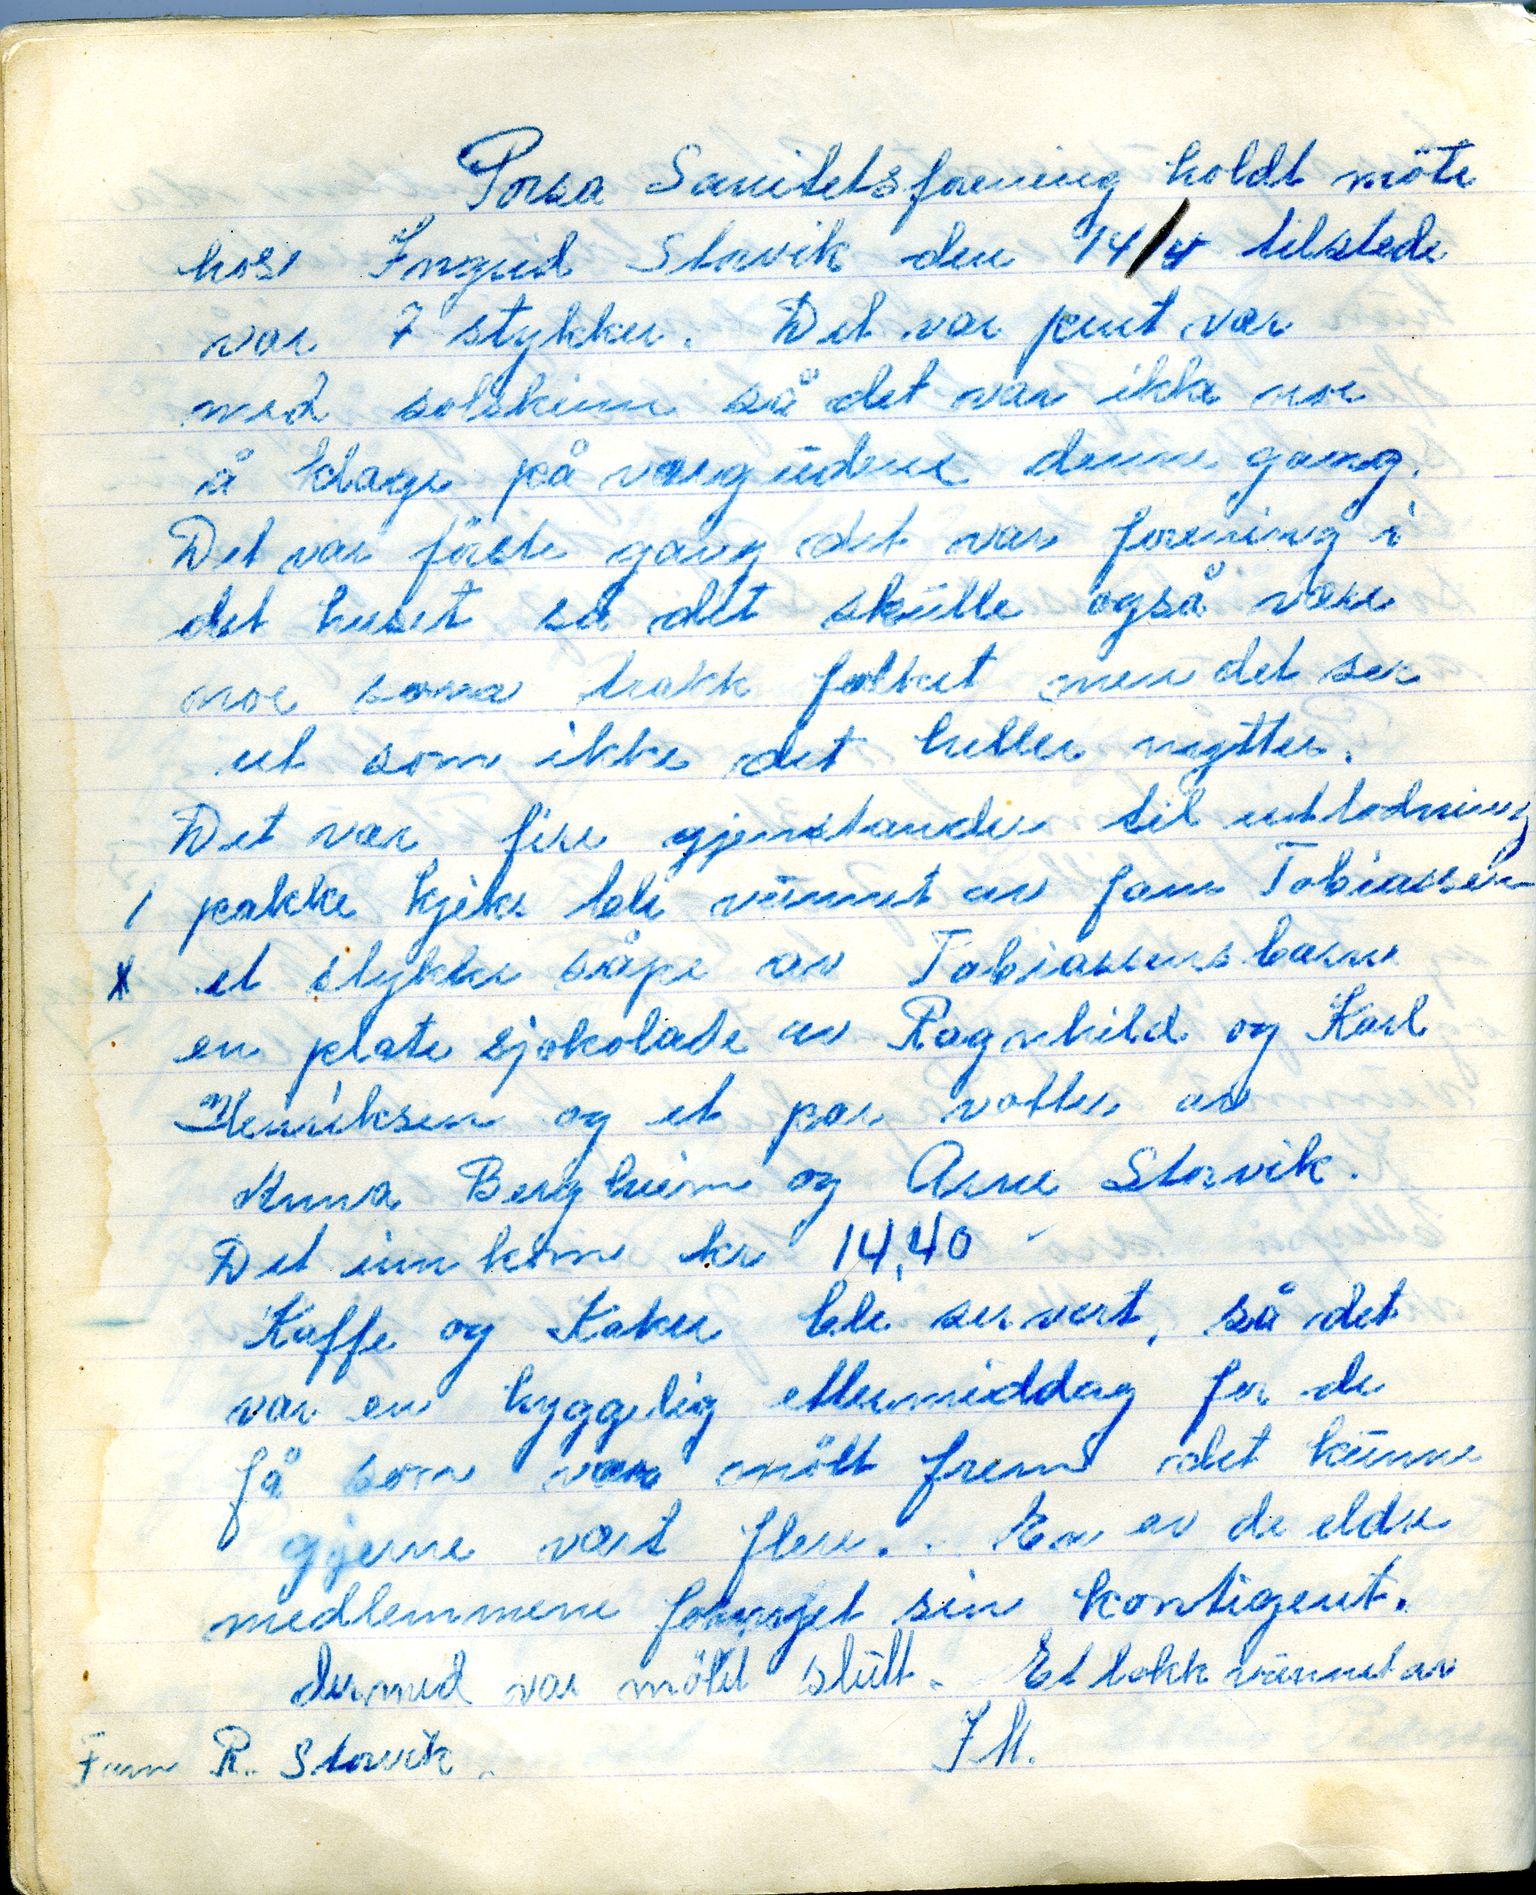 Porsa Sanitetsforening holdt möte
hos Ingrid Storvik den 14/4 tilstede
var 7 stykker. Det var pent vær
med solskinn så det var ikke noe
å klage på værgudene denne gang.
Det var förste gang det var forening i
det huset så det skulle også være
noe som trakk folket men det ser
ut som ikke det heller nytter.
Det var fire gjenstander til utlodning
1 pakke kjeks ble vunnet av fam Tobiassen
et stykke såpe av Tobiassens barna
en plate sjokolade av Ragnhild og Karl
Henriksen og et par votter av
Anna Bergheim og Arne Storvik.
Det inn kom kr 14,40
Kaffe og Kaker ble servert, så det
var en hyggelig ettermiddag for de
få som var mött frem det kunne
gjerne vært flere. En av de eldre
medlemmene forærjet sin kontigent.
dermed var mötet slutt. Et lokk vunnet av
Fam R. Storvik.